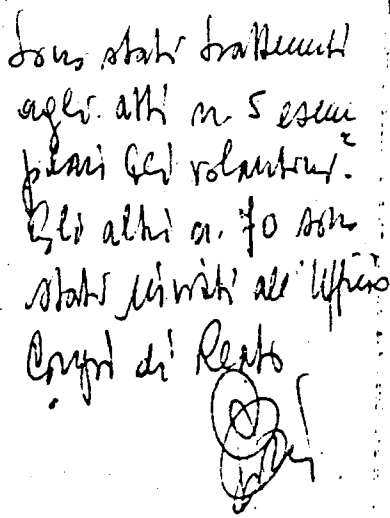 Sono stati trattenuti
agli atti n. 5 esem
plari dei volantini.
Gli altri n. 70 sono
stati inviati all'Ufficio
Corpi di Reato